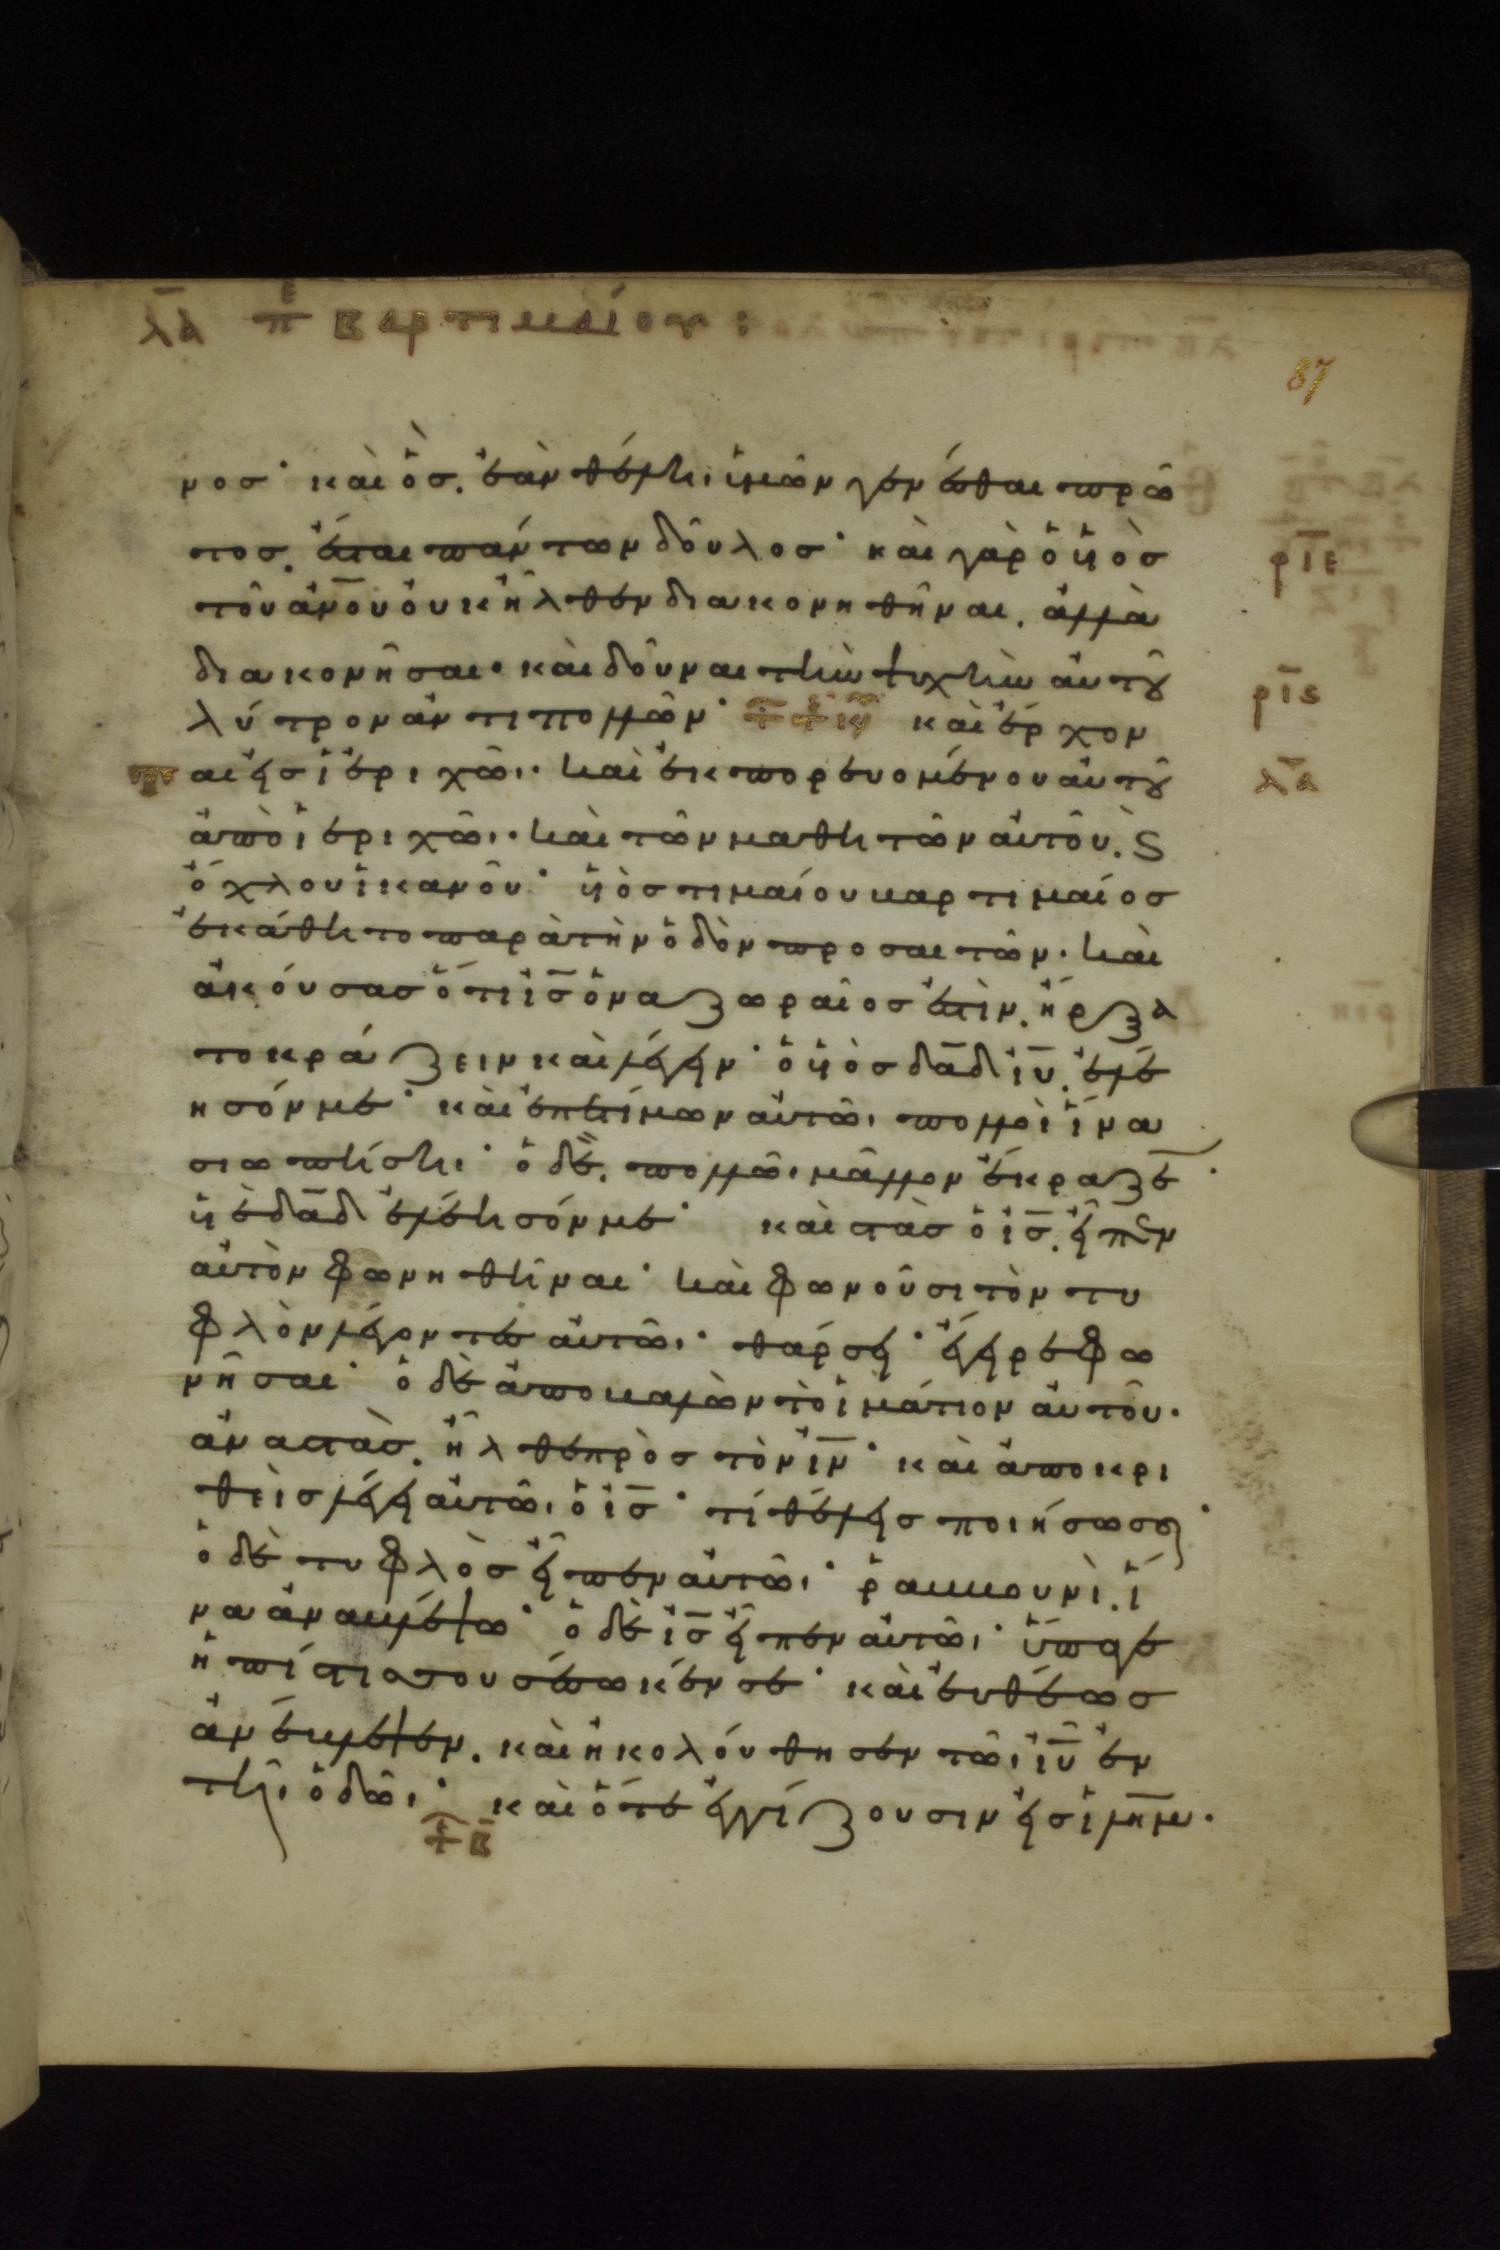 λα πε βαρτιμαίου :
87
νοσ· καὶ ὃσ. ἐὰν θέλη· ὑμῶν γενέσθαι πρῶ
τοσ. ἔσται πάντων δοῦλοσ· καὶ γὰρ ὁ ὑιὸσ
ριε
τοῦ ἀν̅ου ὀυκ ἦλθεν διακονηθῆναι. ἀλλὰ
διακονῆσαι· καὶ δοῦναι τὴν ψυχὴν ἀυτοῦ
ρις
λύτρον ἀντι πολλῶν· καὶ ἔρχον
αι ἐισ ἱεριχῶι· καὶ ἐκπορευομένου ἀυτοῦ
λα
ἀπὸ ἱεριχῶι· καὶ τῶν μαθητῶν ἀυτοῦ. ϗ
ὄχλου ἱκανοῦ· ὑιὸσ τιμαίου βαρτιμαίοσ
ἐκάθητο παρὰ τὴν ὁδὸν προσαιτῶν· καὶ
ἀκούσασ ὅτι ἰ̅σ ὁ ναζωραῖοσ ἐστὶν. ἤρξα
το κράζειν καὶ λέγειν· ὁ ὑιὸσ δα̅δ ἰ̅υ. ἐλέ
ησόν με· καὶ ἐπετίμων ἀυτῶι πολλοὶ ἵνα
σιωπήση· ὁ δὲ. πολλῶι μᾶλλον ἔκραζε̅·
ὑιὲ δα̅δ ἐλέησόν με· καὶ στὰσ ὁ ἰ̅σ. ἐῖπεν
ἀυτὸν φωνηθῆναι· καὶ φωνοῦσι τὸν τυ
φλὸν λέγοντε ἀυτῶι· θάρσει· ἔγειρε φω
νῆσαι· ὁ δὲ ἀποβαλὼν τὸ ἱμάτιον ἀυτοῦ·
ἀναστὰσ. ἦλθε πρὸσ τὸν ἰ̅ν· καὶ ἀποκρι
θεὶσ λέγει ἀυτῶι ὁ ἰ̅σ· τί θέλεισ ποιήσω σοι·
ὁ δὲ τυφλὸσ ἐῖπεν ἀυτῶι· ῥαββουνὶ. ἵ
να ἀναβλέψω· ὁ δὲ ἰ̅σ ἐῖπεν ἀυτῶι· ὕπαγε
ἡ πίστισ σου σέσωκέν σε· καὶ ἐυθέωσ
ἀνέβλεψεν. καὶ ἠκολούθησεν τῶι ἰ̅υ ἐν
τῆι ὁδῶι· καὶ ὅτε ἐγγίζουσιν ἐισ ἱ̅λημ·